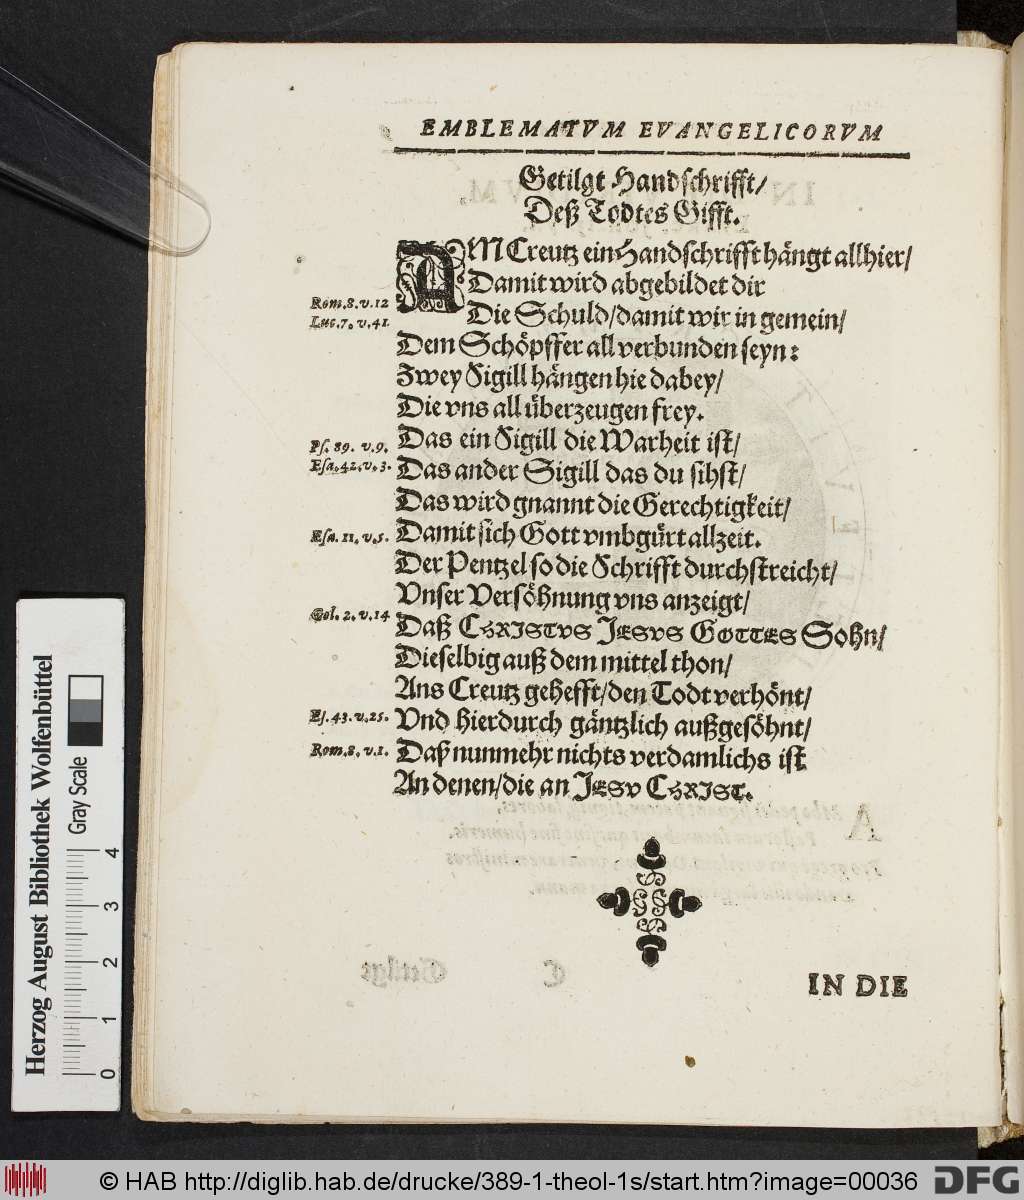 EMBLEMATVM EVANGELICORVM
Getilgt Handschrifft/
Deß Todtes Gifft.
AM Creutz ein Handschrifft hängt allhier/
Damit wird abgebildet dir
Rom. 8. v. 12
Luc. 7. v. 41.
Die Schuld/damit wir in gemein/
Dem Schöpffer all verbunden seyn:
Zwey Sigill hängen hie dabey/
Die vns all überzeugen frey.
Ps. 89. v. 9.
Das ein Sigill die Warheit ist/
Esa. 42. v. 3.
Das ander Sigill das du sihst/
Das wird gnannt die Gerechtigkeit/
Esa. 11. v. 5.
Damit sich Gott vmbgürt allzeit.
Der Pentzel so die Schrifft durchstreicht/
Vnser Versöhnung vns anzeigt/
Col. 2. v. 14
Daß CHRISTVS JESVS GOTTES Sohn/
Dieselbig auß dem mittel thon/
Ans Creutz gehefft/den Todt verhönt/
Es. 43. v. 25.
Vnd hierdurch gäntzlich außgesöhnt/
Rom. 8. v. 1.
Daß nunmehr nichts verdamlichs ist
An denen/die an JESV CHRIST.
IN DIE
Herzog August Bibliothek Wolfenbüttel
Gray Scale
0 1 2 3 4
© HAB http://diglib.hab.de/drucke/389-1-theol-1s/start.htm?image=00036
DFG